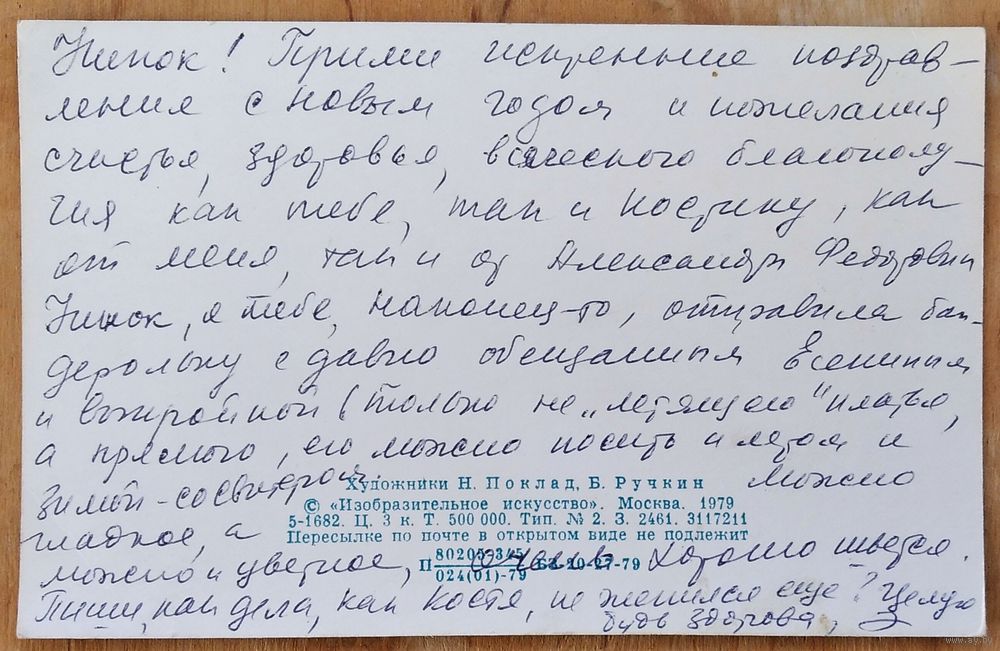 Нинок! Прими искренние поздрав-
ления с новым годом и пожелания
счастья, здоровья, всяческого благополу-
чия как тебе, так и Костику, как
от меня, так и от Александры Федоровны
Нинок, я тебе, наконец-то, отправила бан-
дерольку с давно обещанным Есениным
и выкройкой (только не „летящего" платья,
а прямого, его можно носить и летом и
зимой - со свитером. можно
Художники Н. Поклад, Б. Ручкин
© «Изобразительное искусство». Москва. 1979
5-1682. Ц. 3 к. Т. 500 000. Тип. № 2. З. 2461. 3117211
гладкое, а
Пересылке по почте в открытом виде не подлежит
можно и цветное, очень хорошо шьется.
П 80205-345 63-20-27-79
024(01)-79
Пиши, как дела, как Костя, не женился еще? Целую
будь здорова,
www.ay.by